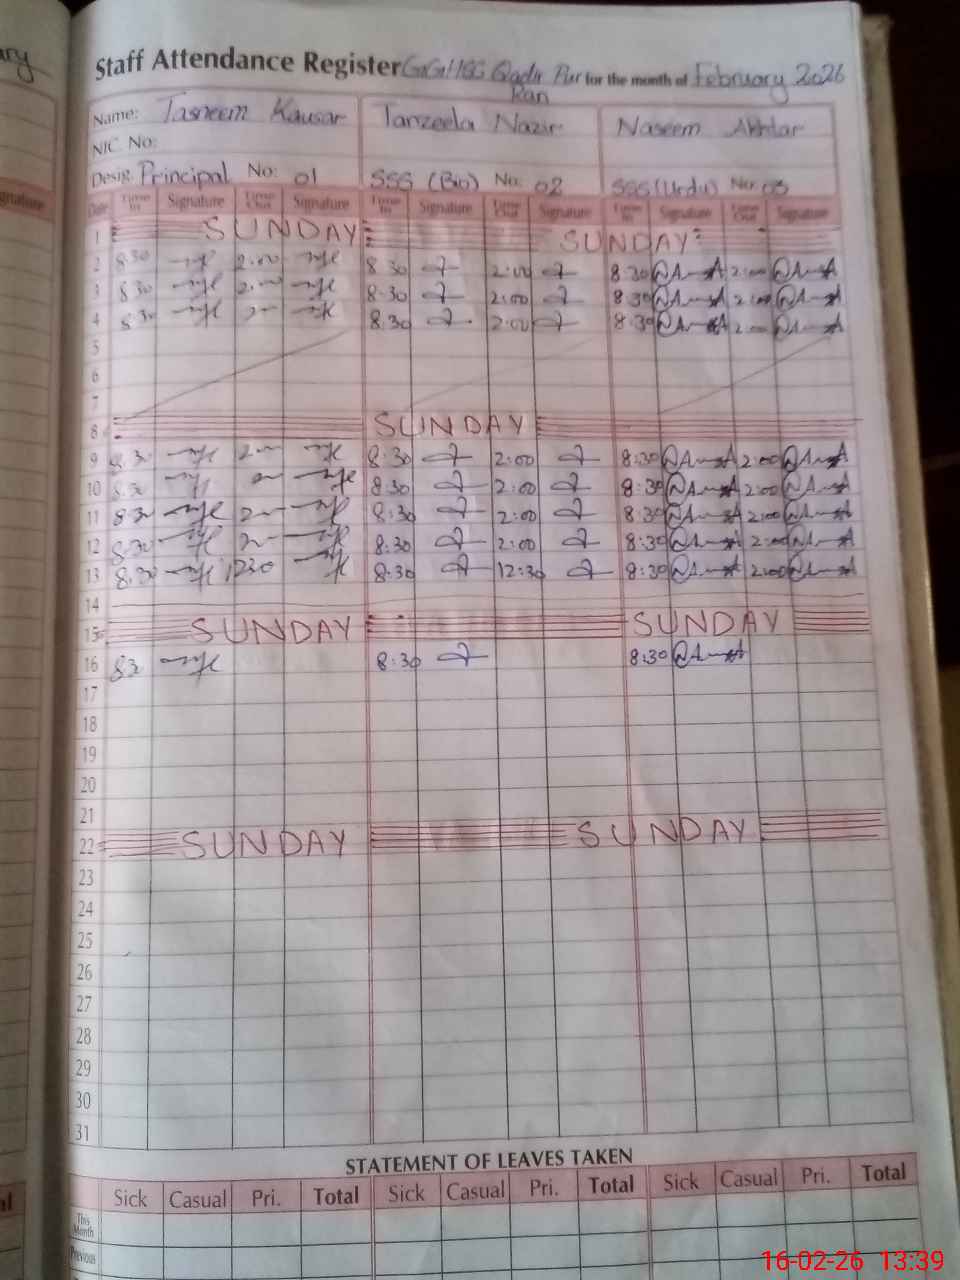 Staff Attendance Register GGHSS Qadir Pur for the month of February 2026
Ran
Name: Tasneem Kausar Tanzeela Nazir Naseem Akhtar
NIC. No:
Desig. Principal No: 01 SSS (Bio) No: 02 SSS (Urdu) No: 03
Date Time In Signature Time Out Signature Time In Signature Time Out Signature Time In Signature Time Out Signature
1 SUNDAY SUNDAY
2 8.30 2.00 8.30 2:00 8:30 2:00
3 8.30 2.00 8.30 2:00 8:30 2:00
4 8.30 8.30 2:00 8:30 2:00
5
6
7
8 SUNDAY
9 8.30 8:30 2:00 8:30 2:00
10 8.30 8:30 2:00 8:30 2:00
11 8.30 8:30 2:00 8:30 2:00
12 8.30 8:30 2:00 8:30 2:00
13 8.30 1230 8:30 12:30 8:30 2:00
14
15 SUNDAY SUNDAY
16 83 8:30 8:30
17
18
19
20
21
22 SUNDAY SUNDAY
23
24
25
26
27
28
29
30
31
STATEMENT OF LEAVES TAKEN
Sick Casual Pri. Total Sick Casual Pri. Total Sick Casual Pri. Total
This Month
Previous
16-02-26 13:39